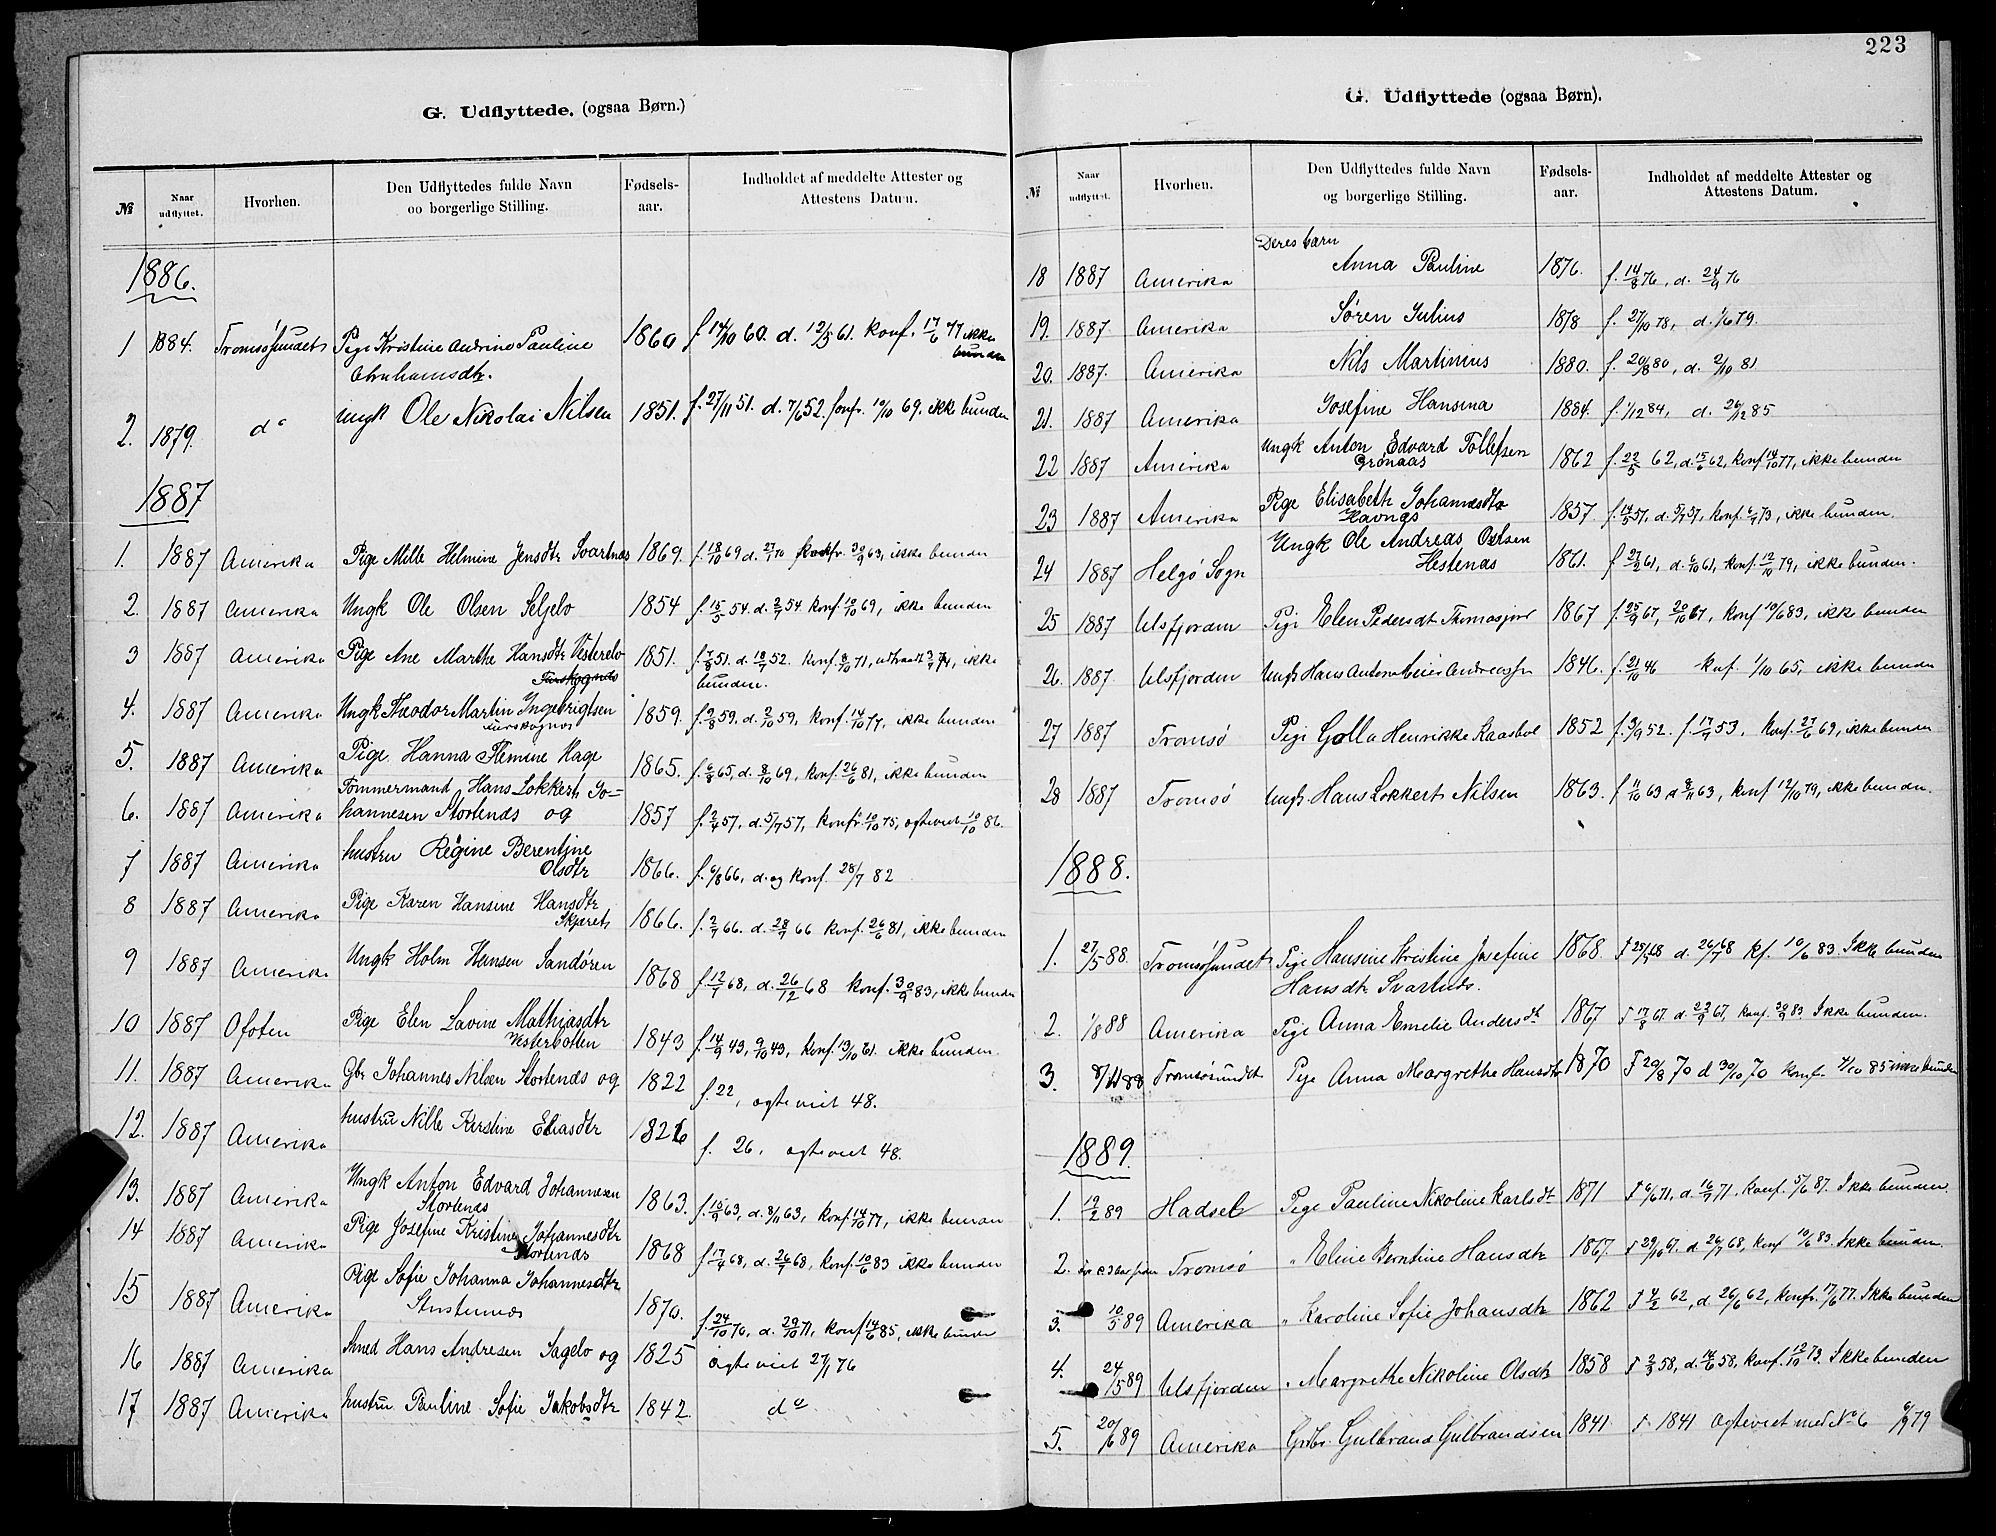 G. Udflyttede. (ogsaa Børn.)
№ Naar udflyttet. Hvorhen. Den Udflyttedes fulde Navn oo borgerlige Stilling. Fødsels-aar. Indholdet af meddelte Attester og Attestens Datum.
1886.
1 1884. Tromsösundet Pige Kristine Andrine Pauline 1860 f. 14/10 60. d. 12/5 61. konf. 17/6 77 ikke bunden
Abrahamsdtr.
2. 1879. do Ungk Ole Nikolai Nilsen 1851. f. 27/11 51. d. 7/6 52. konfr. 10/10 69. ikk bunden
1887
1. 1887 Amerika Pige Mille Helmine Jensdtr Svartnes 1869. f. 18/10 69 d. 27/1 70 konfr. 30/9 63, ikke bunden
2. 1887 Amerika Ungk Ole Olsen Seljelv 1854 f. 15/5 54. d. 2/7 54. konf. 10/10 69, ikke bunden
3 1887 Amerika Pige Ane Marthe Hansdtr Vesterelv 1851. f. 7/8 51. d. 18/7 52. konf. 8/10 71, ikke
bunden.
4. 1887 Amerika Ungk Theodor Martin Ingebrigtsen 1859. f. 9/8 59, d. 2/10 59, konf. 14/10 77, ikke bunden
5. 1887 Amerika Pige Hanna Flemine Hage 1865. f. 6/8 65, d. 8/10 69, konf. 26/6 81, ikke bunden
Tømmermand Hans Lokkert Jo-
6. 1887 Amerika hannesen Stortends og 1857 f. 2/4 57, d. 5/7 57, konfr. 10/10 75, ægteviet 10/10 86.
7 1887 Amerika hustru Regine Berentine 1866. f. 6/8 66, d. og konf. 28/7 82
Olsdtr
8 1887 Amerika Pige Karen Hansine Hansdtr 1866. f. 2/7 66. d. 28/7 66 konf. 26/6 81, ikke bunden
Skjæret
9 1887 Amerika Ungk Holm Hansen Sandören 1868 f. 12/7 68, d. 26/12 68 konf. 30/9 83, ikke bunden
10 1887 Ofoten Pige Elen Lavine Mathiasdtr 1843 f. 14/9 43, 9/10 43, konf. 13/10 61. ikke bunden.
Vesterbotten
11. 1887 Amerika Gbr Johannes Nilsen Stortends og 1822 f. 22, ægteviet 48.
12. 1887 Amerika hustru Nille Kirstine Eliasdtr 1826 f. 26, ægteviet 48.
13. 1887 Amerika Ungk Anton Edvard Johannesen 1863. f. 15/9 63, d. 8/11 63, konf. 14/10 77, ikke bunden
Stortends
14 1887 Amerika Pige Josefine Kristine Johannesdtr 1868 f. 17/4 68, d. 26/7 68, konf. 10/6 83 ikke bunden
Stortends
15 1887 Amerika Pige Sofie Johanna Johannesdtr 1870. f. 24/10 70, d. 29/10 71, konf. 14/6 85, ikke bunden
16 1887 Amerika Smed Hans Andresen Sagelv og 1825 ægteviet 27/1 76
17 1887 Amerika hustru Pauline Sofie Jakobsdtr 1842 do
223
G. Udflyttede (ogsaa Børn).
№ Naar udflyttet. Hvorhen. Den Udflyttedes fulde Navn og borgerlige Stilling. Fødsels-aar. Indholdet af meddelte Attester og Attestens Datum.
Deres barn
18 1887 Amerika Anna Pauline 1876. f. 14/8 76, d. 24/9 76
19. 1887 Amerika Søren Julius 1878 f. 27/10 78, d. 1/6 79.
20. 1887. Amerika Nils Martinius 1880. f. 20/8 80, d. 2/10 81
21. 1887 Amerika Josefine Hansina 1884. f. 1/12 84, d. 26/12 85
22 1887 Amerika Ungk Anton Edvard Tollefsen 1862 f. 22/5 62, d. 15/6 62, konf 14/10 77, ikke bunden
Grönaas
23 1887 Amerika Pige Elisabeth Johannesdtr 1857. f. 14/5 57, d. 5/7 57, konf. 6/7 73, ikke bunden.
Havnæs
24 1887 Helgö Sogn Ungk Ole Andreas Olsen 1861. f 27/2 61, d. 6/10 61, konf. 12/10 79, ikke bunden.
Hestenæs
25 1887 Ulsfjorden Pige Elen Pedersdt Thomasjord 1867 f. 25/9 67, 20/10 67, konf 10/6 83, ikke bunden
26. 1887. Ulsfjorden Ungk Hans Anton Meier Andreassen 1846. f. 21/10 46 konf. 1/10 65, ikke bunden
27 1887 Tromsö Pige Golla Henrikke Kaasbøl 1852 f. 3/9 52. f. 17/7 53. konf. 27/6 69, ikke bunden
28 1887 Tromsö Ungk Hans Lokkert Nilsen 1863. f 11/10 63 d 8/11 63, konf 12/10 79, ikke bunden.
1888.
1. 27/5 88 Tromsösundet Pige Hansine Kristine Josefine 1868 F 25/4 68 d. 26/7 68 kf. 10/6 83 Ikke bunden
Hansdtr Svartnds.
2. 1/8 88 Amerika Pige Anna Emelie Andersdt 1867 F 17/8 67. d. 22/9 67. konf. 30/9 83. Ikke bunden.
3. 8/11 88 Tromsösundet Pige Anna Margrethe Hansdtr 1870 F 29/8 70 d 30/10 70 konf. 4/10 85 ikke bunden
1889.
1. 12/2 89 Hadsel Pige Pauline Nikoline Karlsdt 1871 F 6/6 71, d. 16/7 71. konf. 5/6 87. Ikke bunden.
2. for c 3 aar siden Tromsö " Eline Berntine Hansdtr 1867. F 29/10 67. d 26/7 68, konf 10/6 83. Ikke bunden.
3. 10/5 89 Amerika " Karoline Sofie Johansdtr 1862 F 4/2 62, d. 26/6 62, konfr. 17/6 77. Ikke bunden
4. 24/5 89 Ulsfjorden " Margrethe Nikoline Olsdtr 1858 F 2/3 58, d. 14/6 58, konf. 12/10 73. Ikke bunden
5. 20/6 89 Amerika Grdbr. Gulbrand Gulbrandsen 1841 F. 1841 Ægteviet med No 6 6/9 79